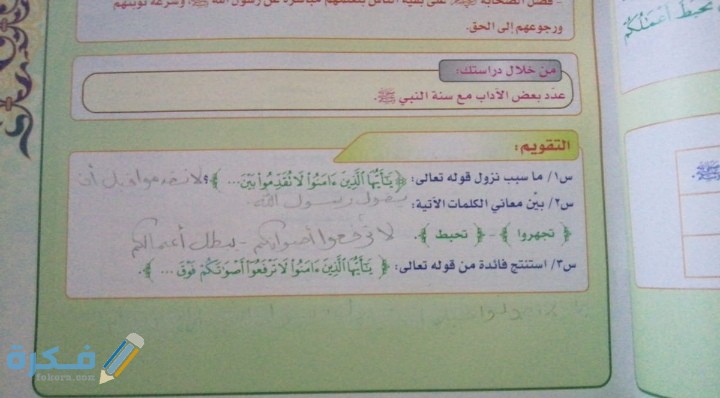 - فضل الصحابة ﷺ على بقية الناس بتعلمهم مباشرة عن رسول الله ﷺ، وسرعة توبتهم
ورجوعهم إلى الحق.
تحبط أعمالكم
من خلال دراستك:
عدّد بعض الآداب مع سنة النبي ﷺ.
التقويم:
س١/ ما سبب نزول قوله تعالى: ﴿يَٰٓأَيُّهَا ٱلَّذِينَ ءَامَنُوا۟ لَا تُقَدِّمُوا۟ بَيْنَ ... ﴾؟ لا تقدموا قبل أن
يقول رسول الله.
س٢/ بيّن معاني الكلمات الآتية:
﴿ تجهروا ﴾ - ﴿ تحبط ﴾. لا ترفعوا أصواتكم - يبطل أعمالكم
س٣/ استنتج فائدة من قوله تعالى: ﴿ يَٰٓأَيُّهَا ٱلَّذِينَ ءَامَنُوا۟ لَا تَرْفَعُوٓا۟ أَصْوَٰتَكُمْ فَوْقَ ... ﴾.
ﷺ.
فكرة
fekera.com